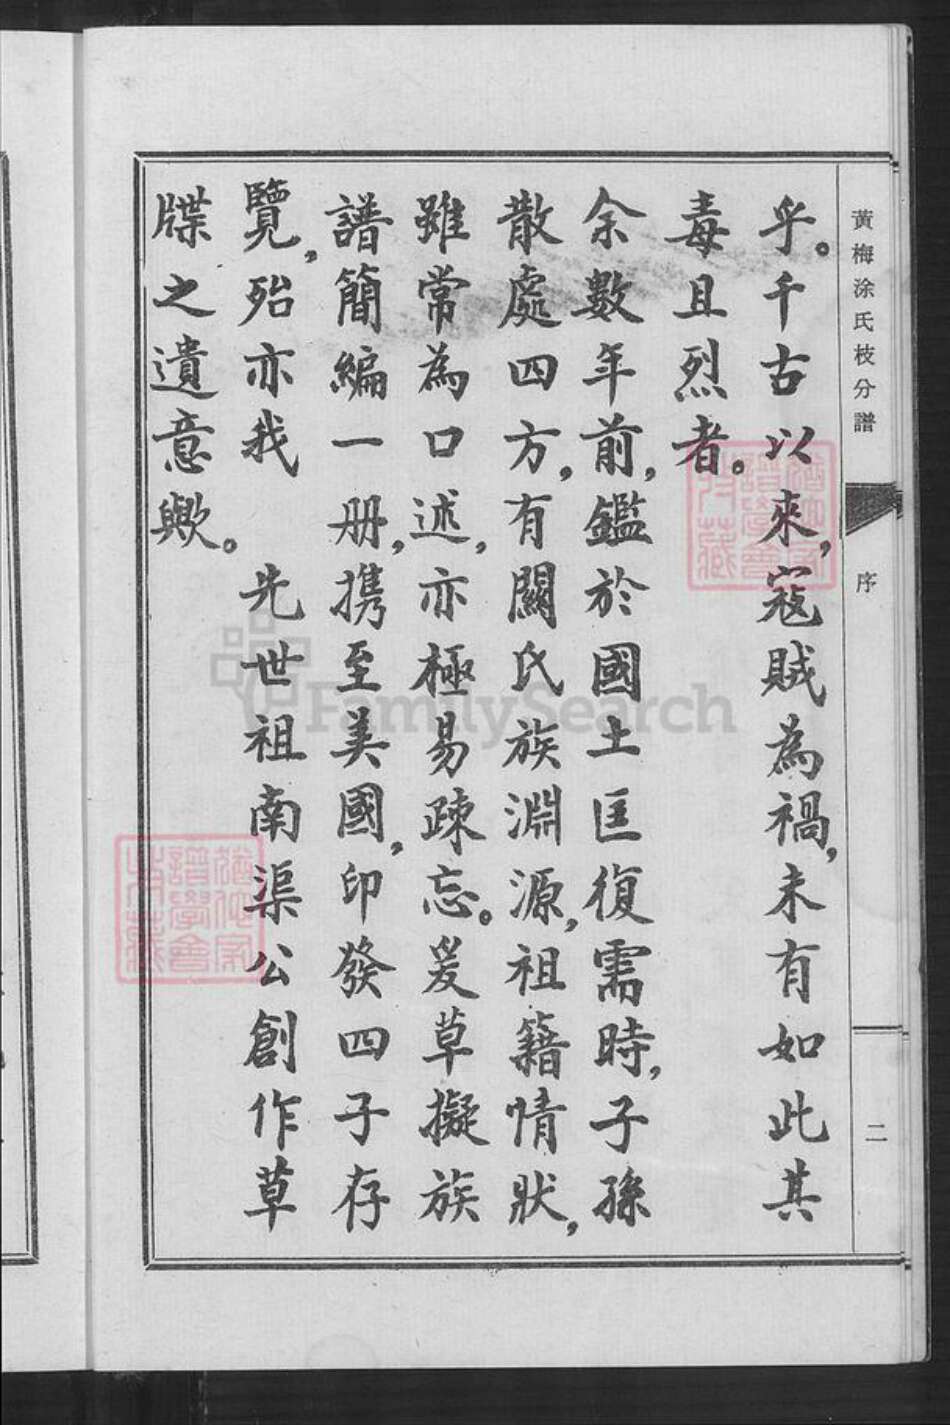 黃梅涂氏枝分譜
序
二
乎。千古以來，寇賊為禍，未有如此其
毒且烈者。
余數年前，鑑於國土匡復需時，子孫
散處四方，有關氏族淵源，祖籍情狀，
雖常為口述，亦極易疎忘。爰草擬族
譜簡編一册，携至美國，印發四子存
覽，殆亦我 先世祖南渠公創作草
牒之遺意歟。
FamilySearch